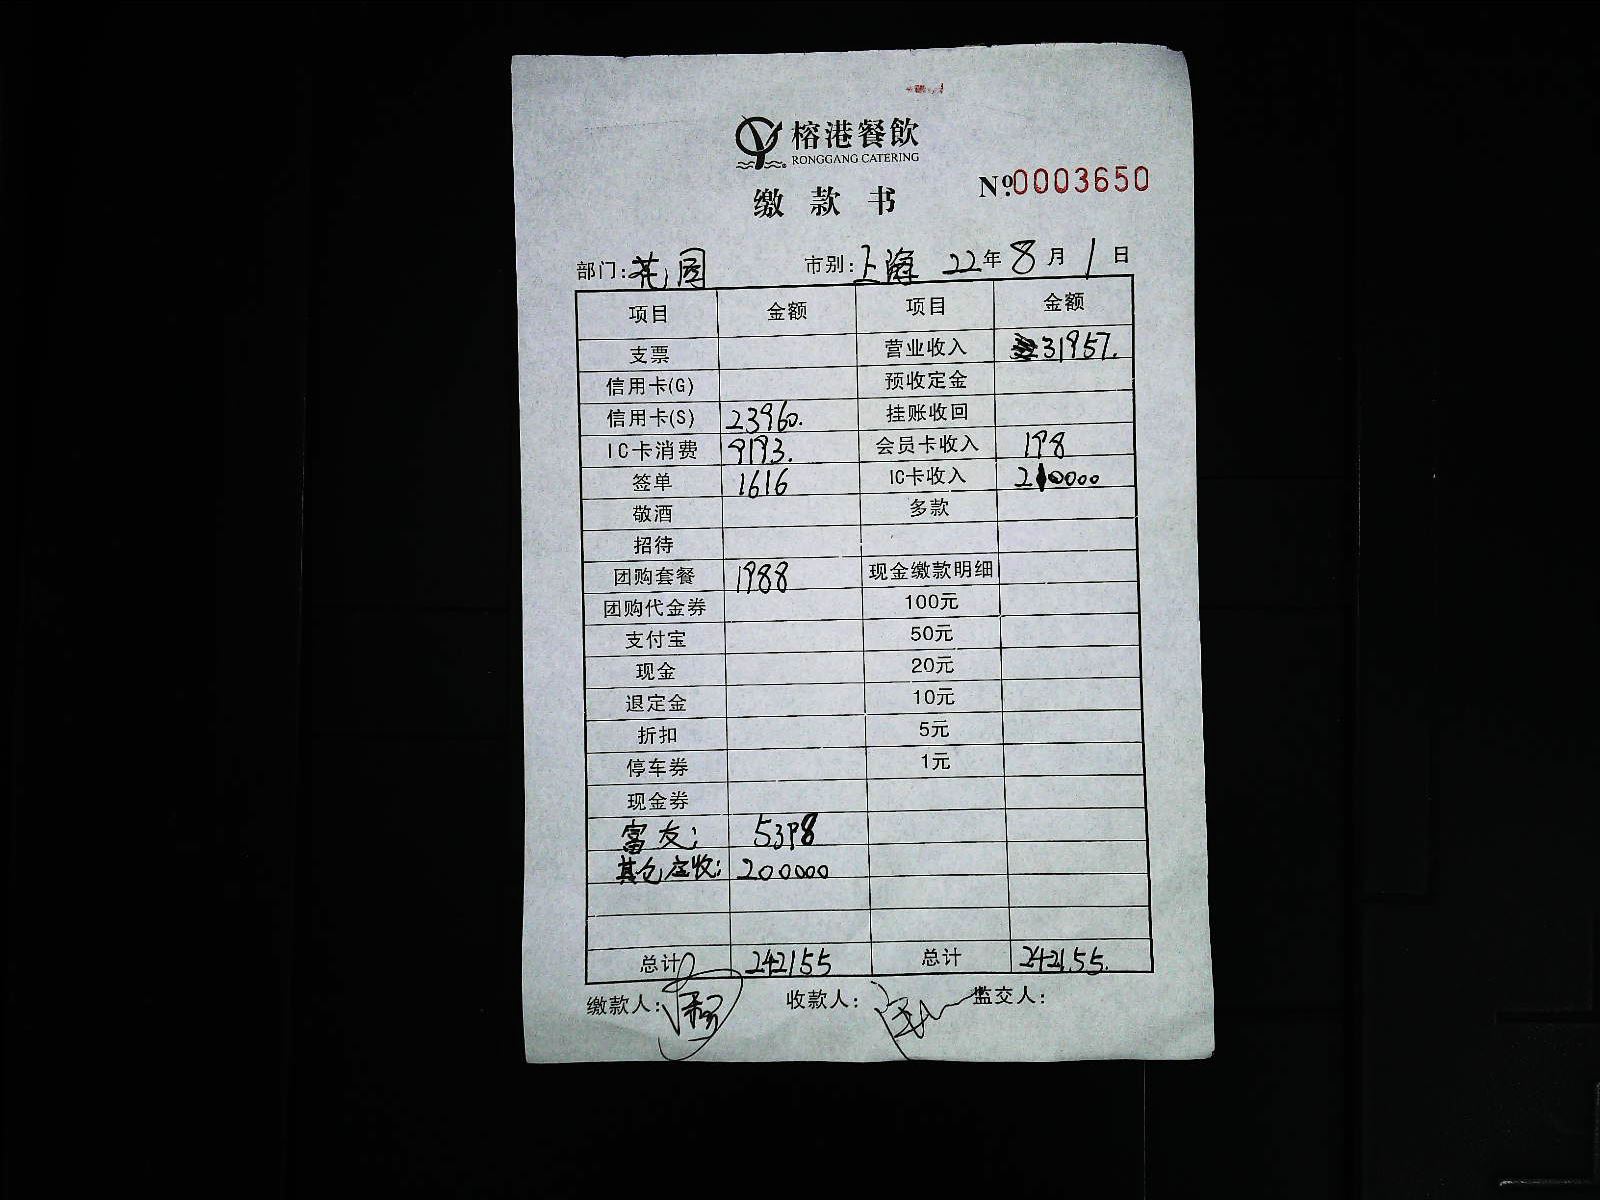 榕港餐飲
RONGGANG CATERING
缴款书
Nº:0003650
部门:花园 市别:上海 22年8月1日
项目 金额 项目 金额
支票 营业收入 31957.
信用卡(G) 预收定金
信用卡(S) 23960. 挂账收回
IC卡消费 9193. 会员卡收入 198
签单 1616 IC卡收入 210000
敬酒 多款
招待
团购套餐 1988 现金缴款明细
团购代金券 100元
支付宝 50元
现金 20元
退定金 10元
折扣 5元
停车券 1元
现金券
富友: 5398
其他应收: 200000
总计 242155 总计 242155.
缴款人: 收款人: 监交人: